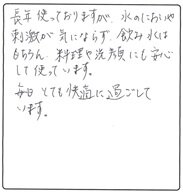 長年使っておりますが、水のにおいや
刺激が気にならず、飲み水は
もちろん、料理や洗顔にも安心
して使っています。
毎日とても快適に過ごして
います。